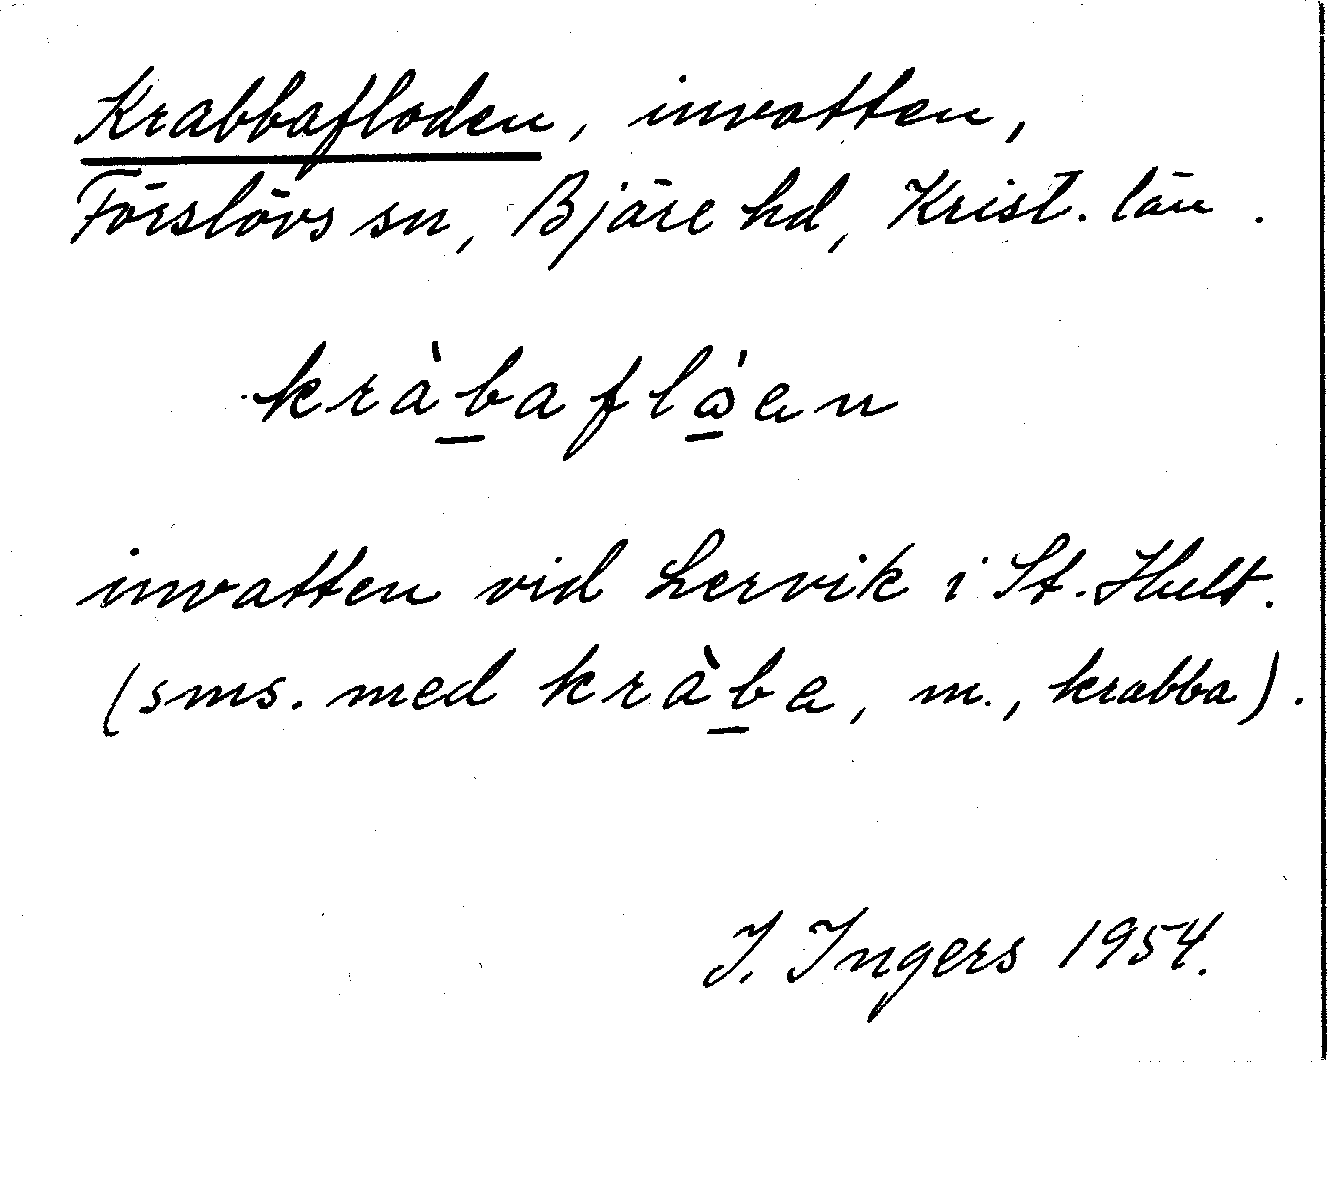 Krabbafloden, invatten,
Förslövs sn, Bjäre hd, Krist. län.
kràb̲aflò̲en
invatten vid Lervik i St. Hult.
(sms. med kràb̲a, m., krabba).
I. Ingers 1954.